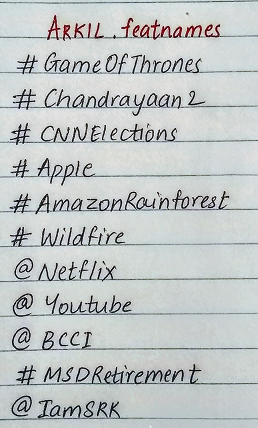 ARKIL.featnames
# GameOfThrones
# Chandrayaan2
# CNNElections
# Apple
# AmazonRainforest
# Wildfire
@ Netflix
@ Youtube
@ BCCI
# MSDRetirement
@ IamSRK